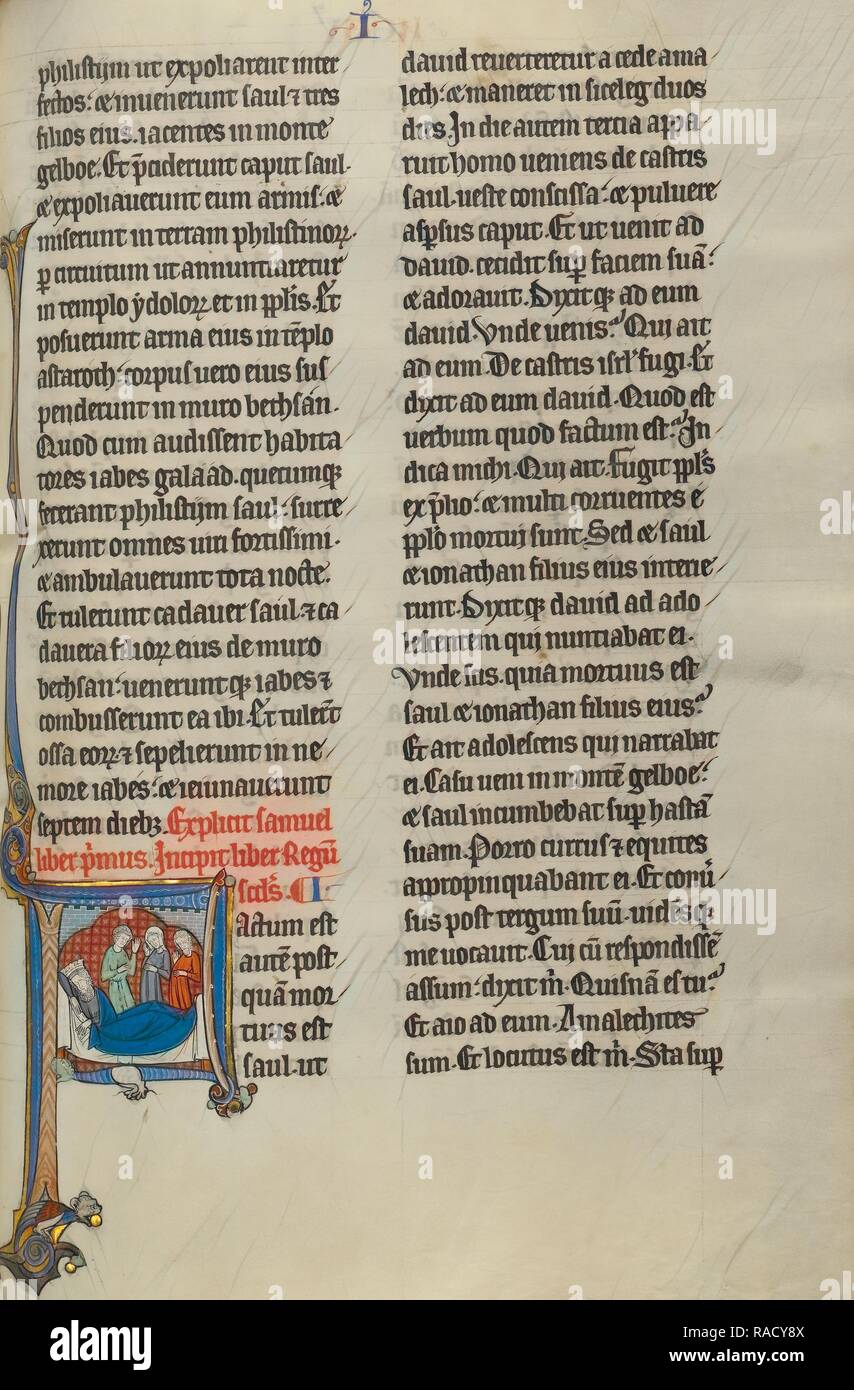 I
philistijm ut expoliarent inter
fectos: et inuenerunt saul ⁊ tres
filios eius iacentes in monte
gelboe. Et p̄ciderunt caput saul.
et expoliauerunt eum armis: et
miserunt in terram philistinoꝝ.
ꝑ circuitum ut annuntiaretur
in templo ydoloꝝ et in ppl̓is. Et
posuerunt arma eius in tēplo
astaroth: corpus uero eius sus
penderunt in muro bethsan.
Quod cum audissent habita
tores iabes galaad. quecumqꝫ
fecerant philistijm saul: surre
xerunt omnes uiri fortissimi.
et ambulauerunt tota nocte.
Et tulerunt cadauer saul. ⁊ ca
dauera filioꝝ eius de muro
bethsan: uenerunt qꝫ iabes ⁊
combusserunt ea ibi. Et tulerūt
ossa eoꝝ. ⁊ sepelierunt in ne
more iabes: et ieiunauerunt
septem diebꝫ. Explicit samuel
liber p̄mus. Incipit liber Regū
scd̓s. C I.
actum est
autē post
quā mor
tuus est
saul. ut
dauid reuerteretur a cede ama
lech: et maneret in siceleg duos
dies. In die autem tertia appa
ruit homo ueniens de castris
saul. ueste conscissa: et puluere
asꝑsus caput. Et ut uenit ad
dauid. cecidit suꝑ faciem suā:
et adorauit. Dixitqꝫ ad eum
dauid. Unde uenis? Qui ait
ad eum. De castris isrl̓ fugi. Et
dixit ad eum dauid. Quod est
uerbum quod factum est? In
dica michi. Qui ait. Fugit ppl̓s
ex p̄lio: et multi corruentes e
ppl̓o mortui sunt. Sed et saul
et ionathan filius eius interie
runt. Dixitqꝫ dauid ad ado
lescentem qui nuntiabat ei.
Unde scis. quia mortuus est
saul et ionathan filius eius?
Et ait adolescens qui narrabat
ei. Casu ueni in montē gelboe:
et saul incumbebat suꝑ hastā
suam. Porro currus ⁊ equites
appropinquabant ei. Et conu̓
sus post tergum suū. uidēsqꝫ
me uocauit. Cui cū respondissē
assum: dixit m̓. Quisnā es tu?
Et aio ad eum. Amalechites
sum. Et locutus est m̓. Sta suꝑ
a
alamy
Image ID: RACY8X
www.alamy.com